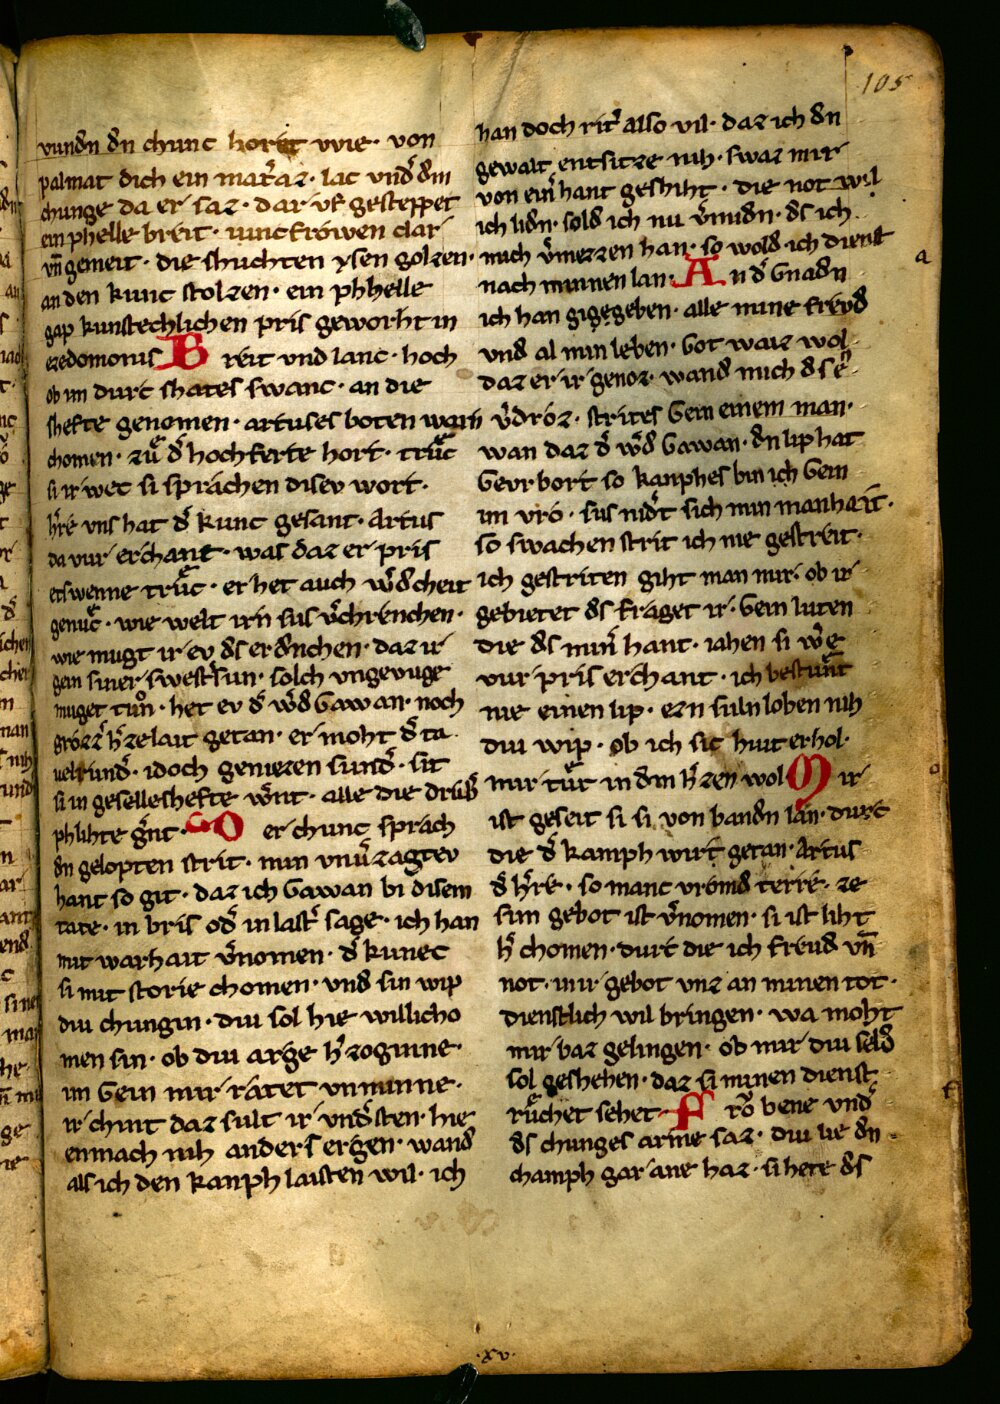 105
vundn dn chunc horet wie · von
palmat dich ein mat͛az · lac vnd͛ dm
chunge da er saz · dar vf gesteppet
ein phelle breit · iuncfrowen clar
vn̄ gemeit · die shuchten ysen golzen ·
an den kunc stolzen · ein phhelle
gap kunstechlichen pris geworht in
ezedomonis B reit vnd lanc · hoch
ob im durc shates swanc · an die
shefte genomen · artuses boten warn
chomen · zuͤ d͛ hochferte hort · truͤc
si ir wec si sprachen disev wort ·
h͛re vns hat d͛ kunc gesant · Artus
da vur erchant · was daz er pris
etswenne truͤc · er het auch w͛dcheit
genuͤc · wie welt irn sus v͛chrenchen ·
wie mugt ir ev ds erdnchen · daz ir
gein siner swest͛ sun · solch vngevuge
muget tuͦn · het ev d͛ w͛d Gawan · noch
grozz͛ h͛zelait getan · er moht d͛ ta
uelrund͛ · idoch geniezen sund͛ · sit
si in geselleshefte w͛nt · alle die drub͛
phlihte g͛nt · D er chunc sprach
dn gelopten strit · min vnv͛zagtev
hant so git · daz ich Gawan bi disem
tate · in bris od͛ in last͛ sage · ich han
mit warhait v͛nomen · d͛ kunec
si mit storie chomen · vnd sin wip
diu chungin · diu sol hie willicho
men sin · ob diu arge h͛zoginne ·
im Gein mir ratet vnminne ·
ir chint daz sult ir vnd͛sten · hie
enmach nih anders ergen · wand
als ich den kanph laisten wil · ich
han doch rit͛ also vil · daz ich dn
gewalt entsitze nih · swaz mir
von ein͛ hant geshiht · die not wil
ich lidn · sold ich nu v͛midn · ds ich
mich v͛mezzen han · so wold ich dienst
nach minnen lan · A n d͛ Gnadn
ich han gigegeben · alle mine freud
vnd al min leben · Got waiz wol
daz er ir genoz · wand mich ds e͛
v͛droz · strites Gein einem man ·
wan daz d͛ w͛d Gawan · dn lip hat
Gevrbort so kanphes bin ich Gein
im vro · sus nid͛t sich min manhait ·
so swachen strit ich nie gestreit ·
ich gestriten giht man mir · ob ir
gebietet ds fraget ir · Gein luten
die ds min͛ hant · iahen si w͛e
vur pris erchant · ich bestuͤnt
nie einen lip · ezn suln loben nih
diu wip · ob ich sic hiut erhol ·
mir tuͤt in dm h͛zen wol M ir
ist geseit si si von bandn lan · durc
die d͛ kamph wirt getan · Artus
d͛ h͛re · so manc vromd terre · ze
sinn gebot ist v͛nomen · si ist liht
h͛ chomen · durc die ich freud vn̄
not · mir gebot vnz an minen tot ·
dienstlich wil bringen · wa moht
mir baz gelingen · ob mir diu seld
sol geshehen · daz si minen dienst
ruͤchet sehet · F roͮ bene vnd͛
ds chunges arme saz · diu lie dn
champh gar ane haz · si hete ds
a
xv